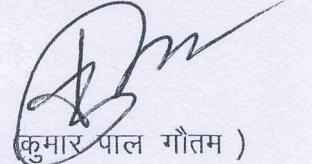 (कुमार पाल गौतम )